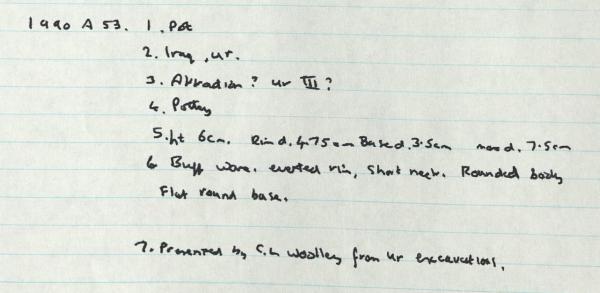 1990 A 53. 1. Pot
2. Iraq, Ur.
3. Akkadian? Ur III?
4. Pottery
5. ht 6cm. Rim d. 4.75cm Base d. 3.5cm max d. 7.5cm
6 Buff ware. everted rim, short neck. Rounded body
Flat round base.
7. Presented by C.L Woolley from Ur excavations.